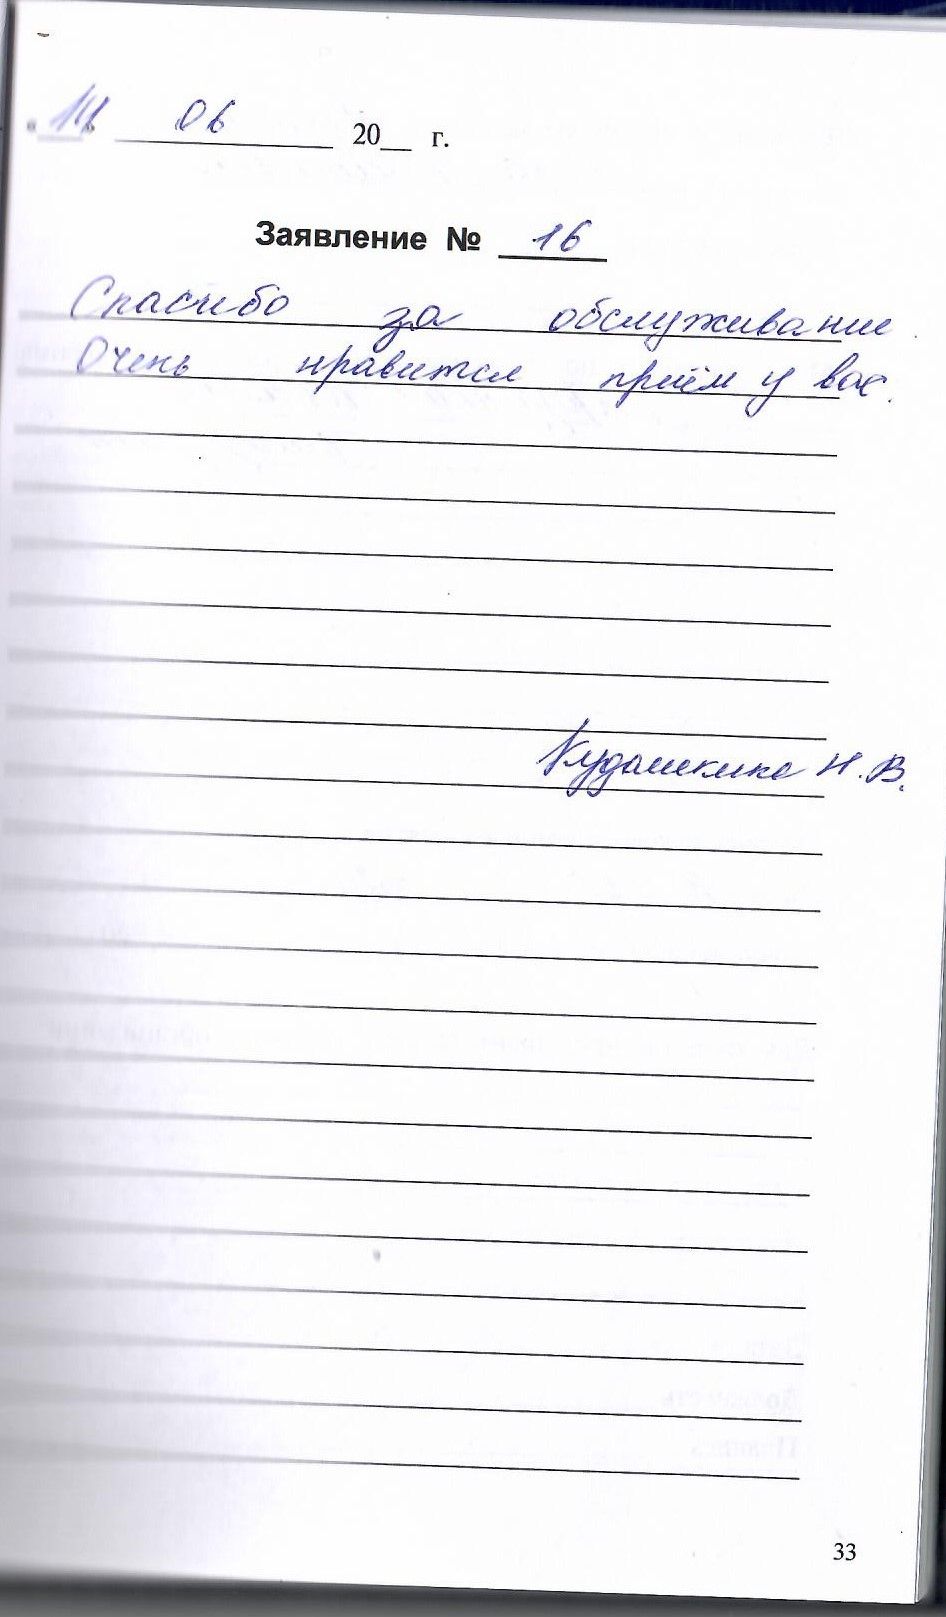 " 14 " 06 20__ г.
Заявление № 16
Спасибо за обслуживание.
Очень нравится приём у вас.
Кудашкина Н.В.
33